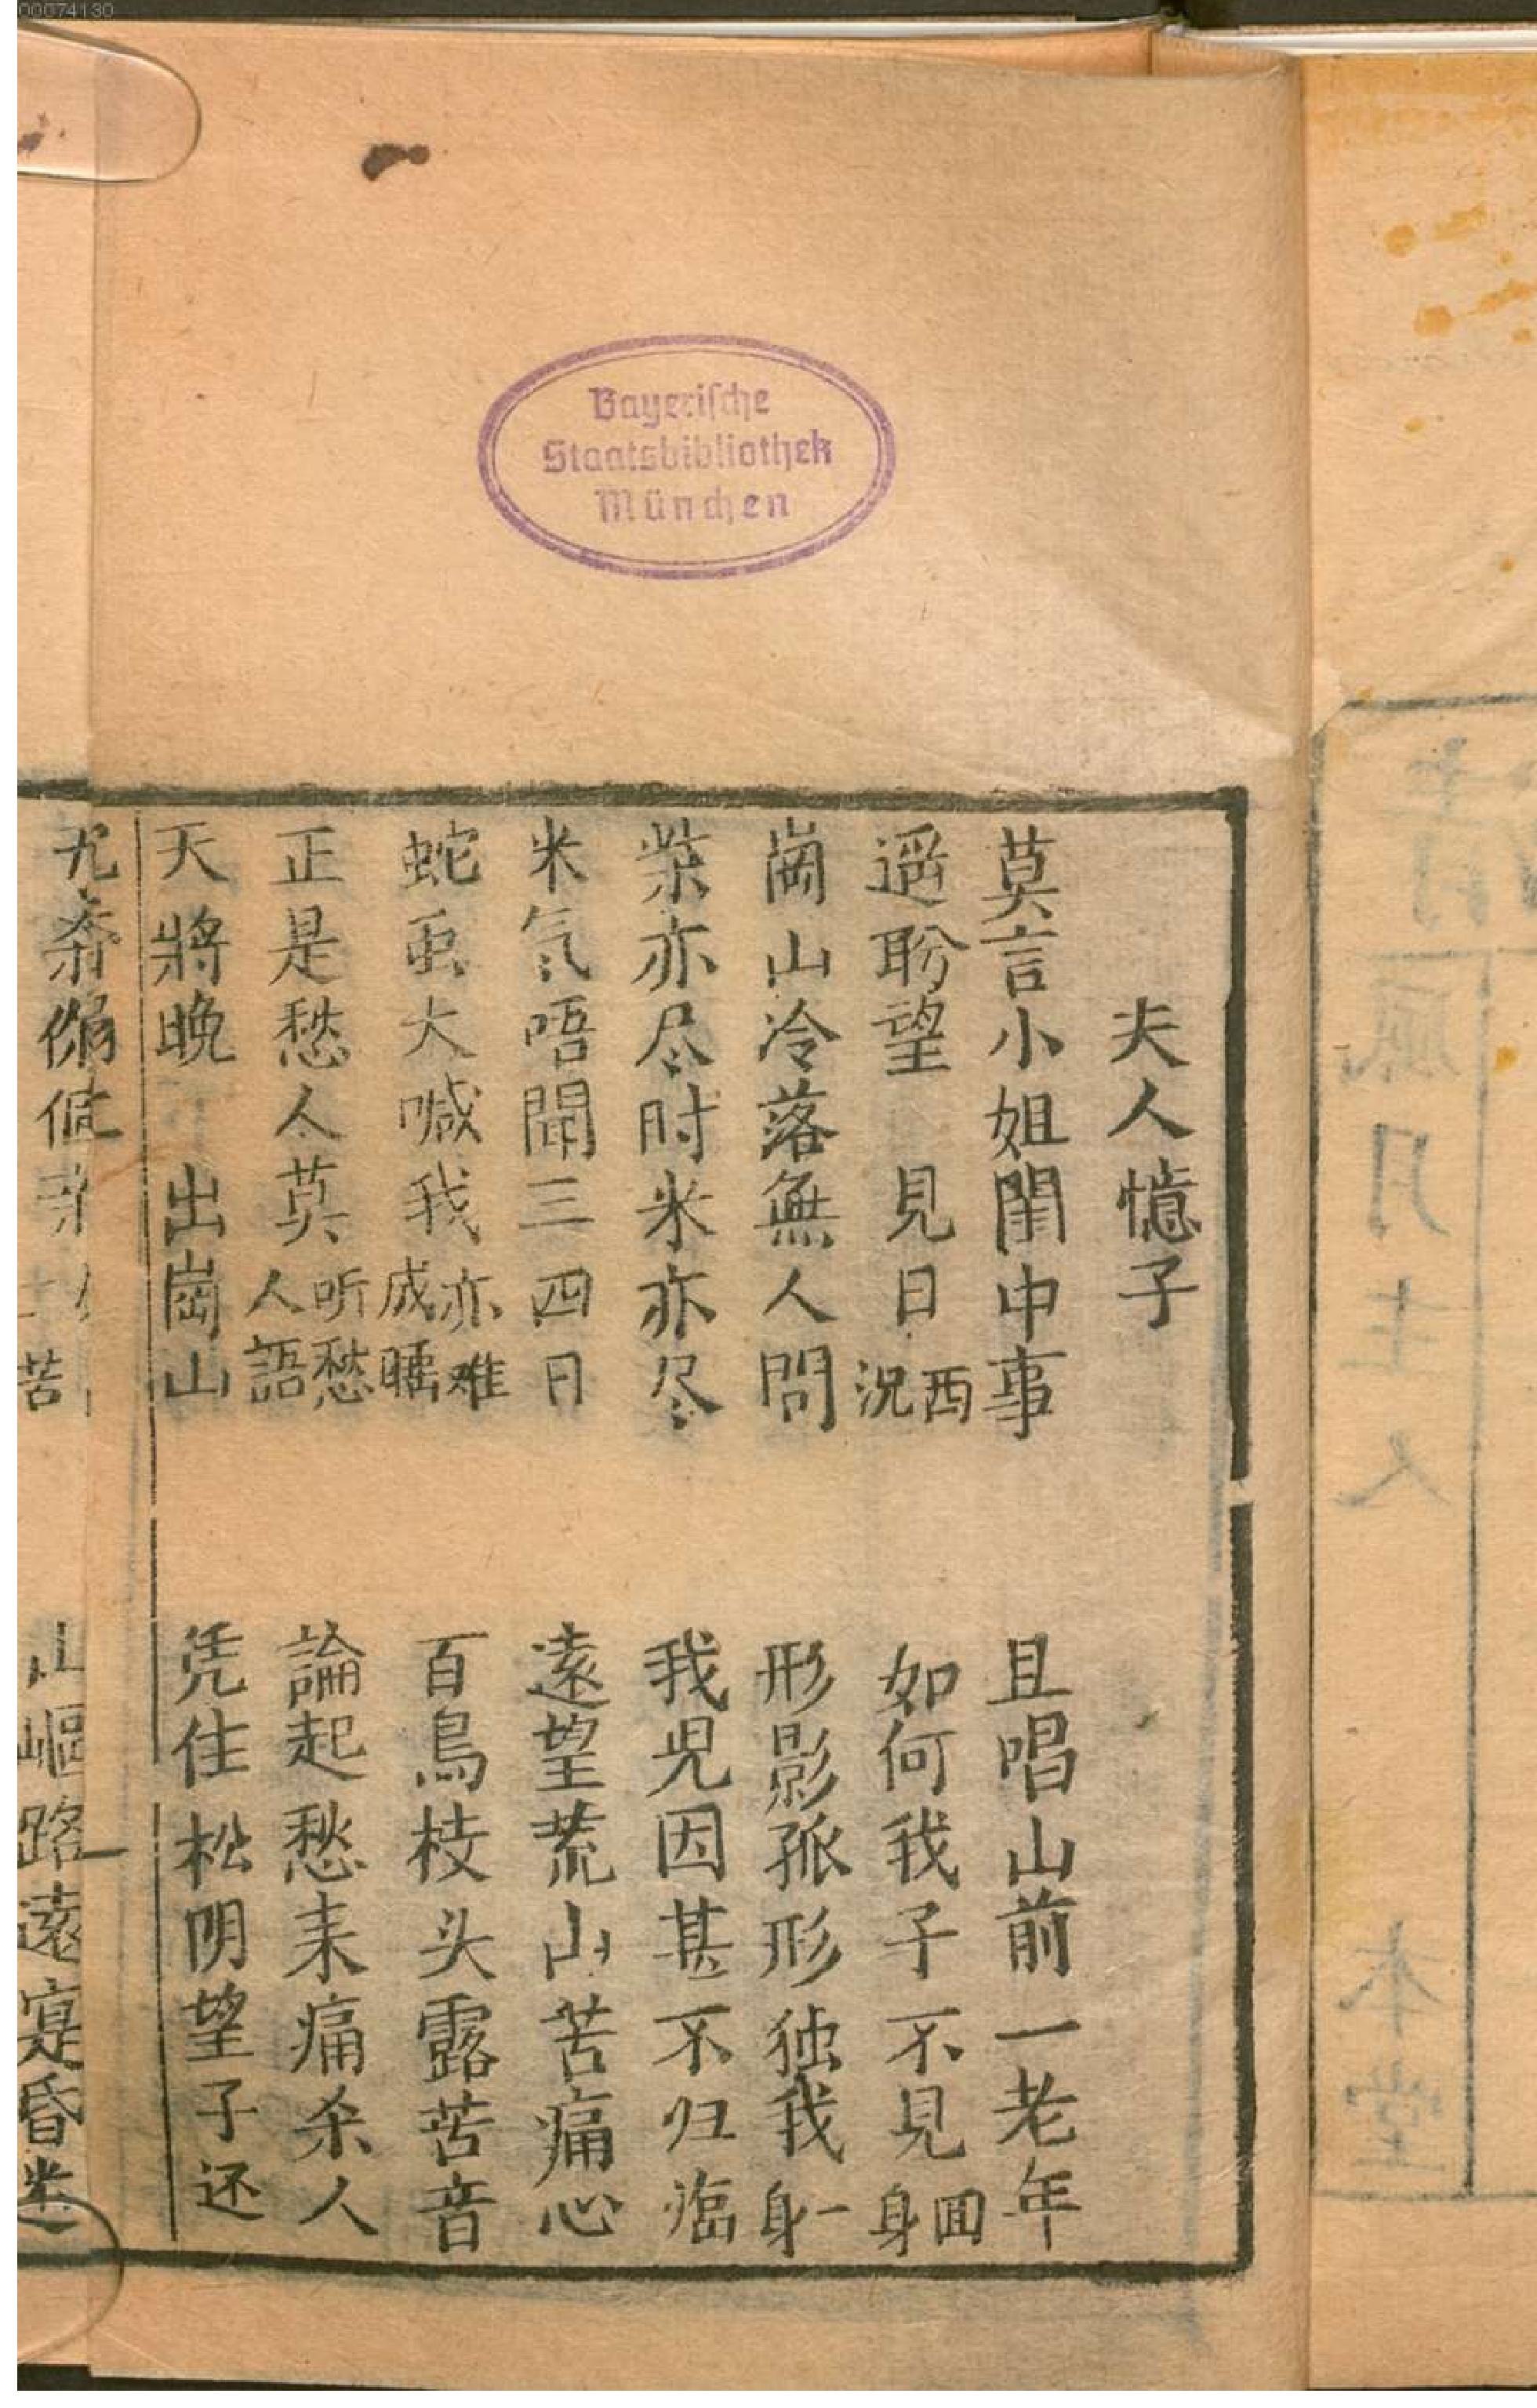 00074130
Bayerische
Staatsbibliothek
München
夫人憶子
莫言小姐閨中事 且唱山前一老年
遥聁望 見日西況 如何我子不見回身
崗山冷落無人問 形影孤形独我一身
柴亦尽时米亦尽 我児因甚不归临
米氣唔聞三四日 遠望荒山苦痛心
蛇虫大喊我亦难成瞌 百鳥枝头露苦音
正是愁人莫听愁人語 論起愁来痛杀人
天將晚 出崗山 凭住松阴望子还
山嶇路遠寔昏迷